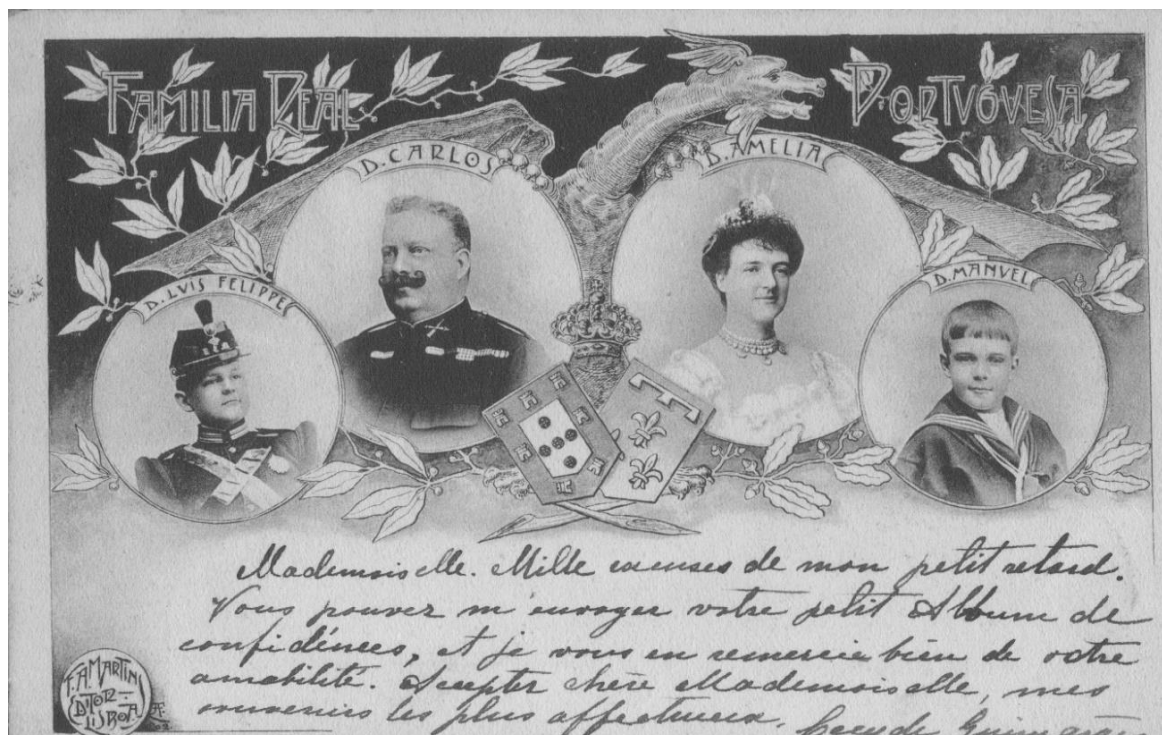 FAMILIA REAL PORTVGVESA
D. CARLOS
D. AMELIA
D. LVIS FELIPPE
D. MANVEL
Mademoiselle. Mille excuses de mon petit retard.
Vous pouvez m'envoyer votre petit Album de
confidénces, et je vous en remercie bien de votre
amabilité. Accepter chère Mademoiselle, mes
souvenirs les plus affectueux.
F. A. MARTINS
EDITOR
LISBOA